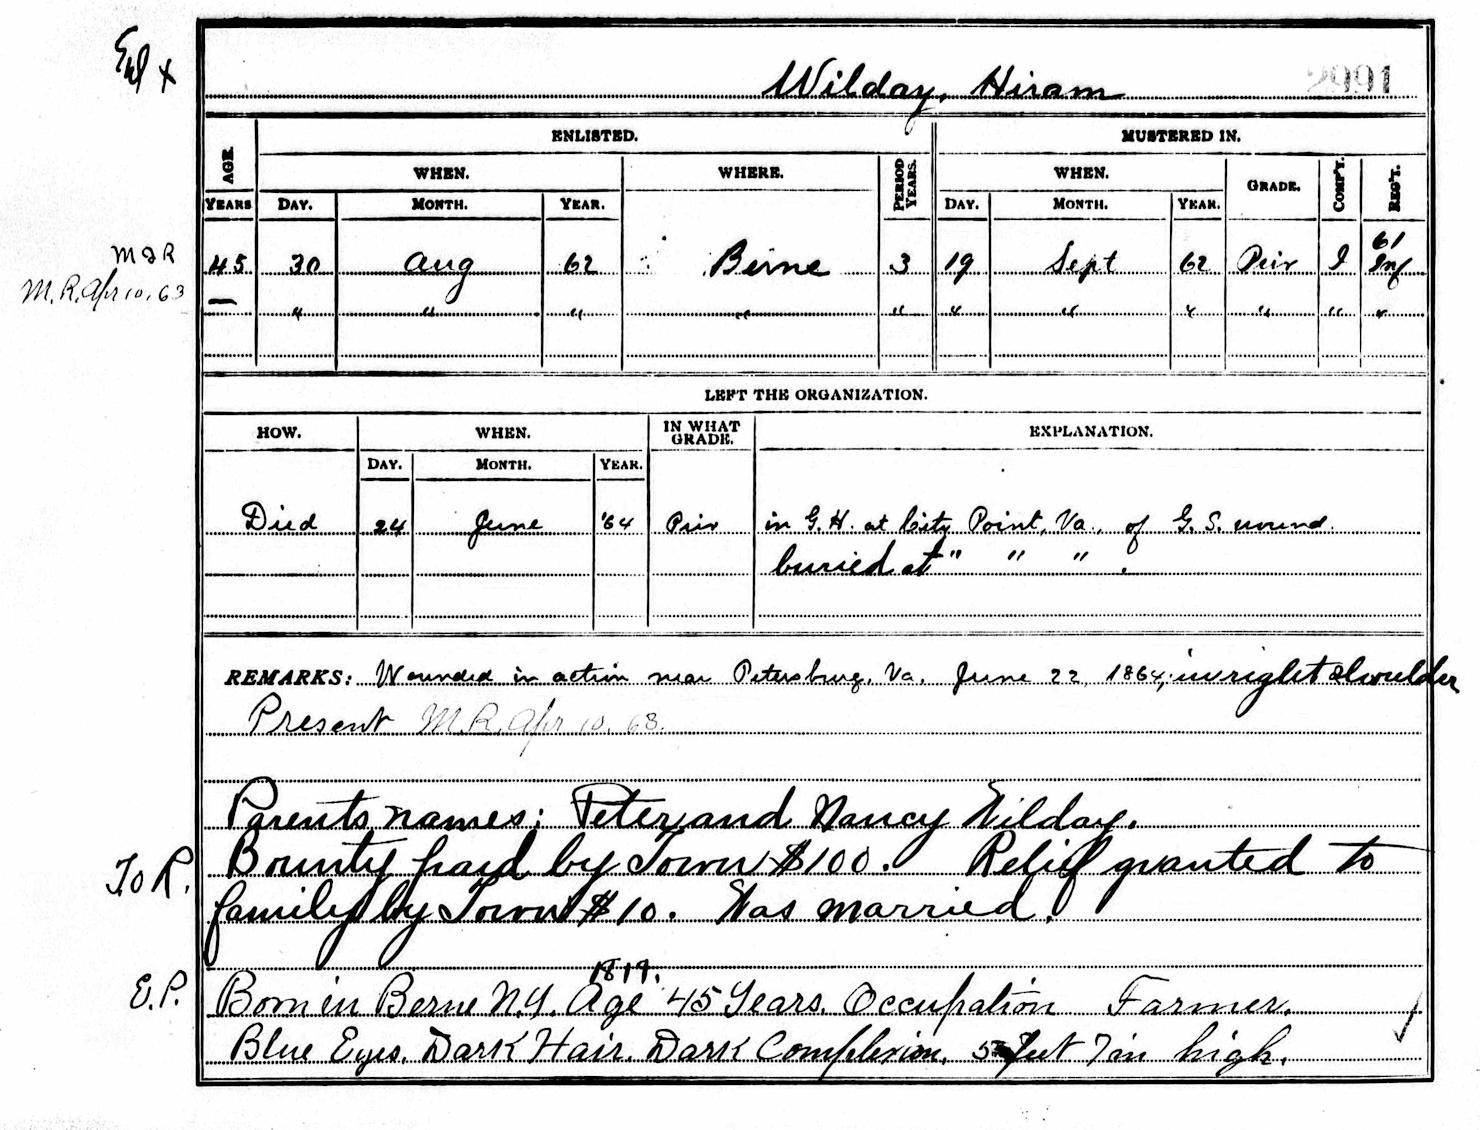 Enl x
Wilday, Hiram 2991
ENLISTED. MUSTERED IN.
AGE. WHEN. WHERE. PERIOD YEARS. WHEN. GRADE. COMP'Y. REG'T.
YEARS DAY. MONTH. YEAR. DAY. MONTH. YEAR.
M & R 45 30 Aug 62 Berne 3 19 Sept 62 Priv I 61 Inf
M.R. Apr 10, 63 — " " " " " " " " " " "
LEFT THE ORGANIZATION.
HOW. WHEN. IN WHAT GRADE. EXPLANATION.
DAY. MONTH. YEAR.
Died 24 June '64 Priv in G.H. at City Point, Va., of G.S. wound.
buried at " " " .
REMARKS: Wounded in action near Petersburg, Va. June 22, 1864, in right shoulder
Present M.R. Apr 10, 63.
Parents names: Peter and Nancy Wilday.
To R. Bounty paid by Town $100. Relief granted to
family by Town $10. Was married.
1819.
E.P. Born in Berne N.Y. Age 45 Years. Occupation Farmer.
Blue Eyes. Dark Hair. Dark Complexion. 5 feet 7 in high.